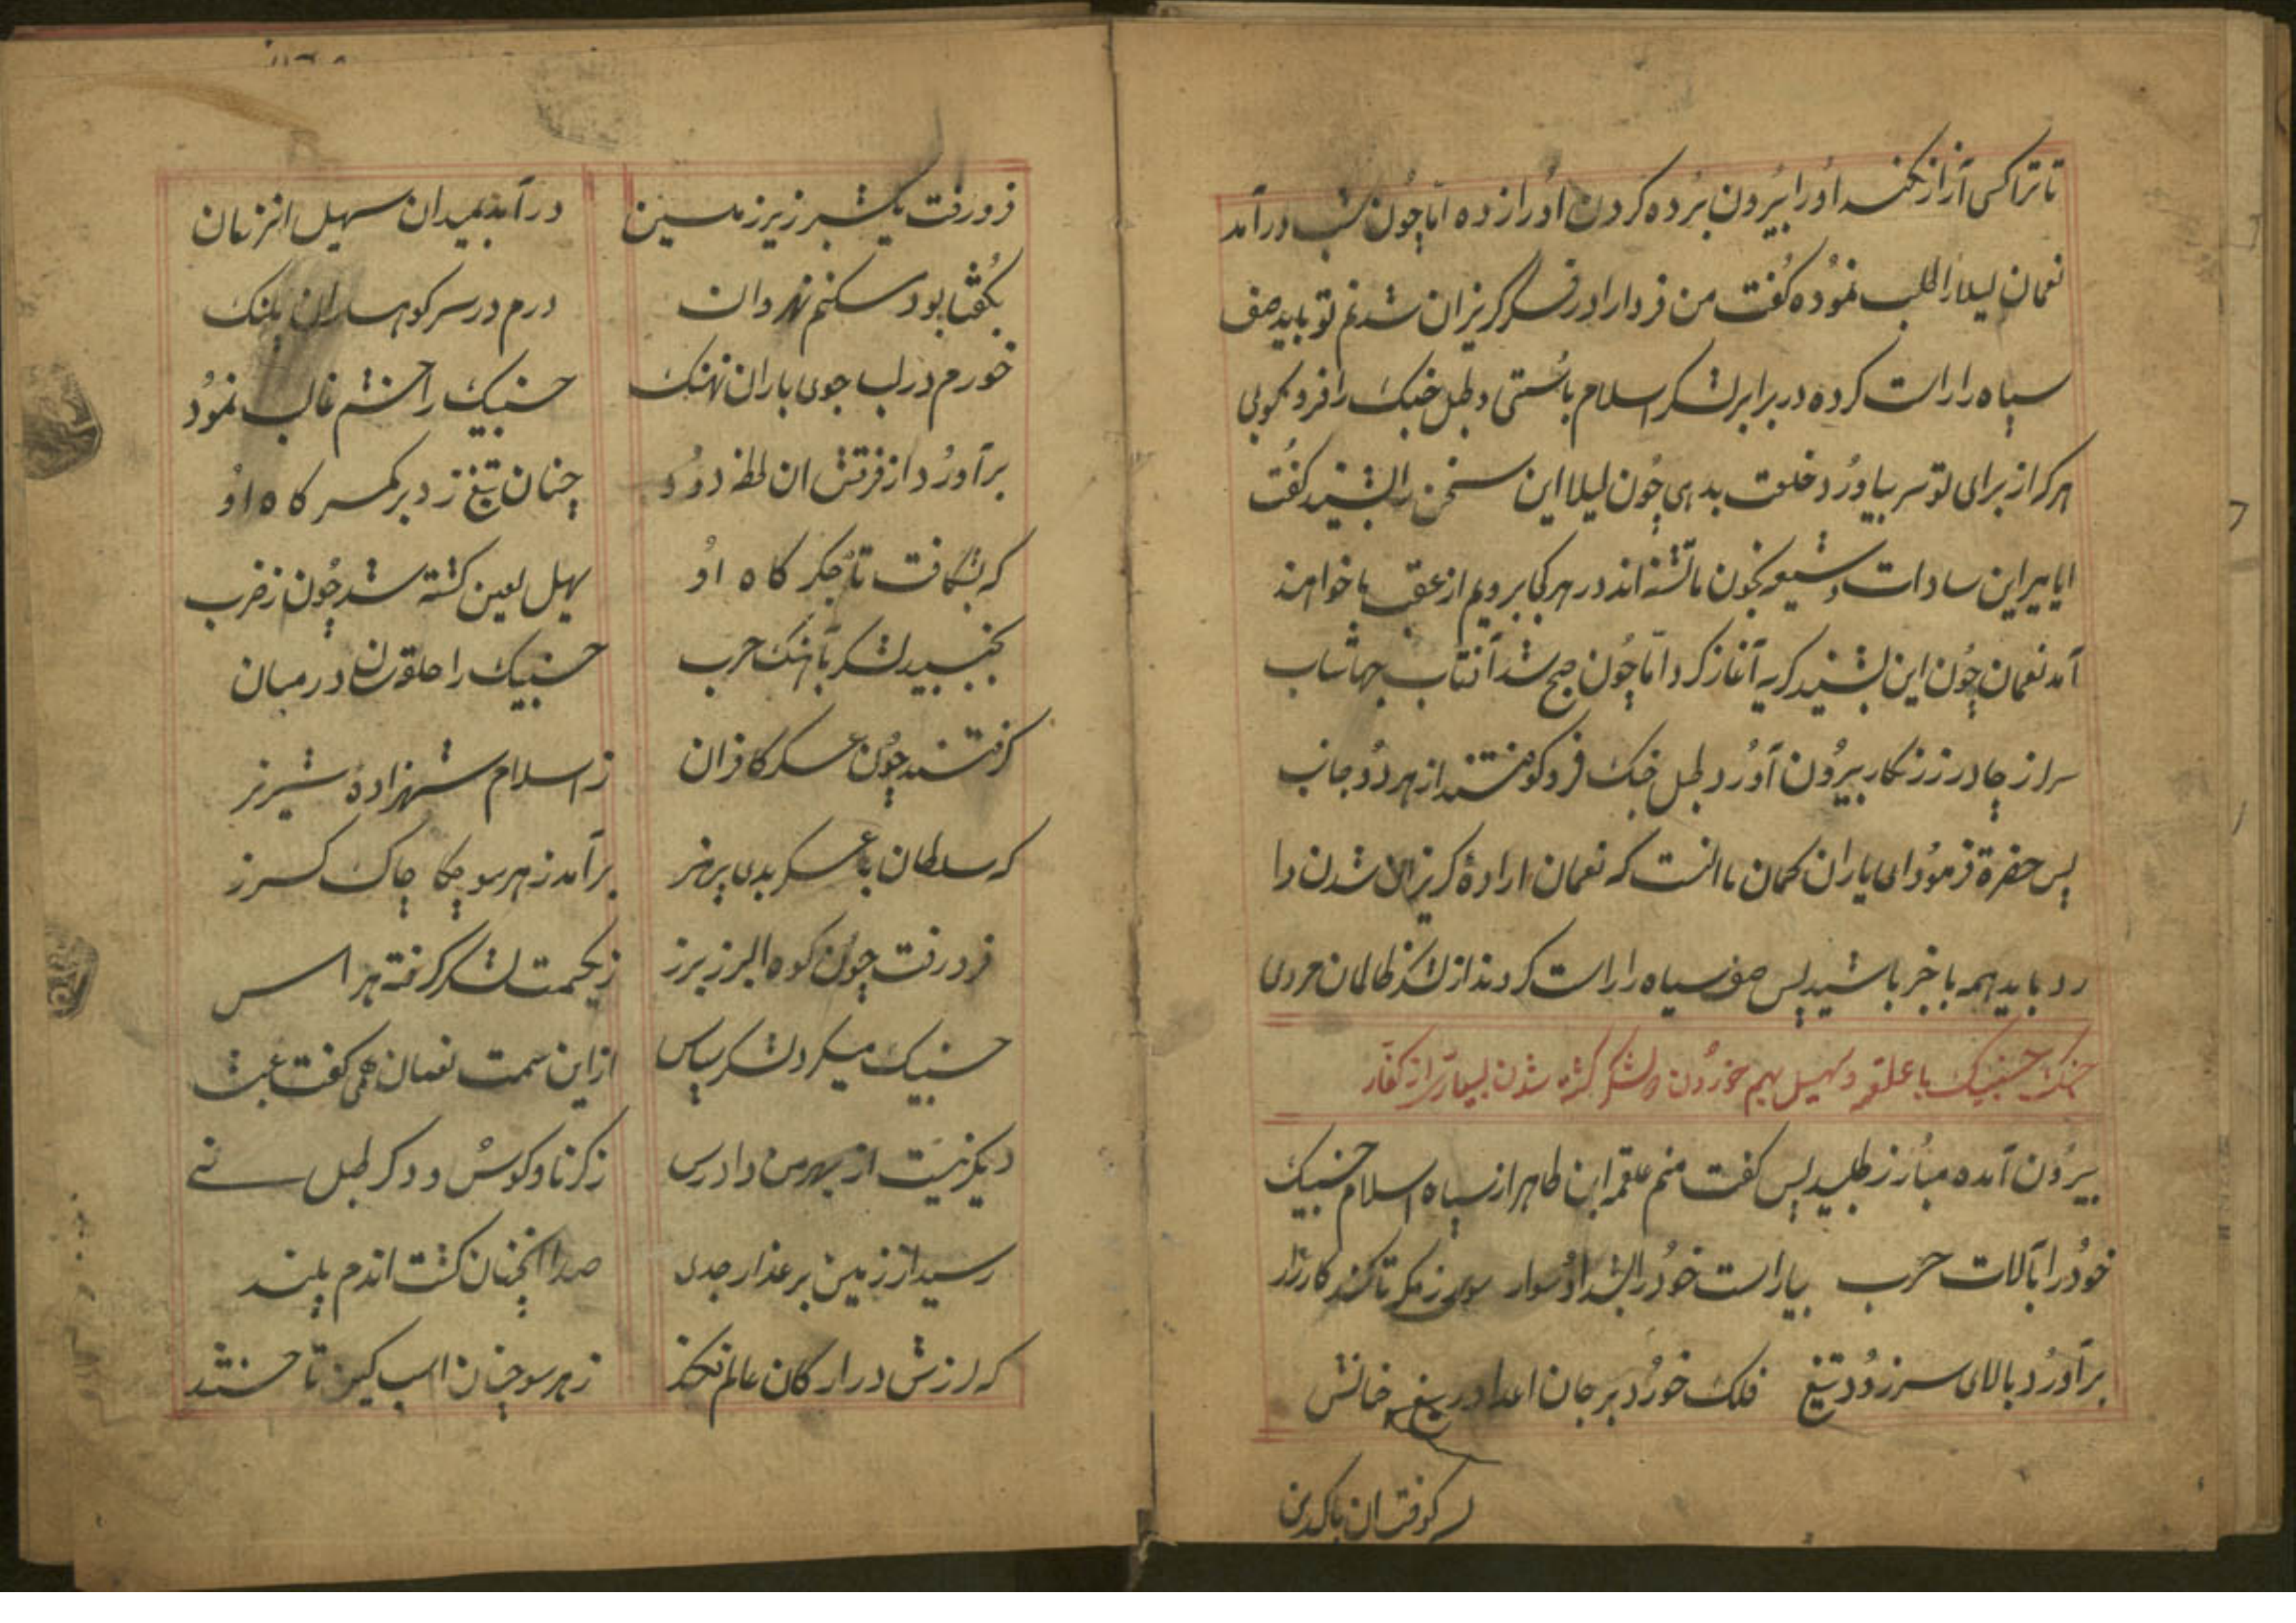 تا ترا کسی آزار نکند او را بیرون برده کردن او را زده اما چون شب درآمد
نعمان لیلا را طلب نموده کفت من فردا را در فکر کریزان شدنم تو باید صف
سپاه را راست کرده در برابر لشکر اسلام بائستی و طبل جنک را فرو کوبی
هر که از برای تو سر بیاورد خلعت بدهی چون لیلا این سخن را بشنید کفت
ایا پیر این سادات و شیعه بخون ما تشنه اند در هر کجا برویم از عقب ما خواهند
آمد نعمان چون این بشنید کریه آغاز کرد اما چون صبح شد آفتاب جهانتاب
سر از چادر زرنکار بیرون آورد طبل جنک فرو کوفتند از هر دو جانب
پس حضرة فرمود ای یاران کمان ما انست که نعمان اراده کریزان شدن دا
رد باید همه با خبر باشید پس صف سپاه را راست کردند از لشکر ظالمان مردی
جنک جنیک با علقمه و سهیل بهم خوردن و لشکر کشته شدن بسیار از کفار
بیرون آمده مبارز طلبید پس کفت منم علقمه ابن طاهر از سپاه اسلام جنیک
خود را بآلات حرب بیاراست خود را بشد او سوار سوی رزمکه تا کند کارزار
برآورد بالای سر زود تیغ فلک خورد بر جان اعدا دریغ چنانش
بسر کوفت ان پاکدین
فرو رفت یکشبر زیر زمین درآمد بمیدان سهیل انزمان
بکفتا بود مسکنم نهروان درم در سر کوهساران پلنک
خورم در لب جوی باران نهنک جنیک را خشم غالب نمود
برآورد از فرقش ان لحظه دود چنان تیغ زد بر کمر کاه او
که بشکافت تا جکر کاه او سهیل لعین کشته شد چون ز ضرب
بجنبید لشکر بآهنک حرب جنیک را حلقه زنان در میان
کرفتند چون عسکر کافران ز اسلام شهزاده شیر نر
که سلطان با عسکر بدی پر هنر برآمد ز هر سو چکا چاک کرز
فرو رفت چون کوه البرز برز ز یکسمت لشکر کرفته هراس
جنیک میکرد لشکر سپاس از این سمت نعمان همی کفت عبث
دیکر نیست از بهر من دادرس ز کرنا و کوس و دکر طبل نے
رسید از زمین بر عذار جدی صدا انچنان کشت اندم بلند
که لرزش در ارکان عالم فکند ز هر سو چنان اسب کین تاختند